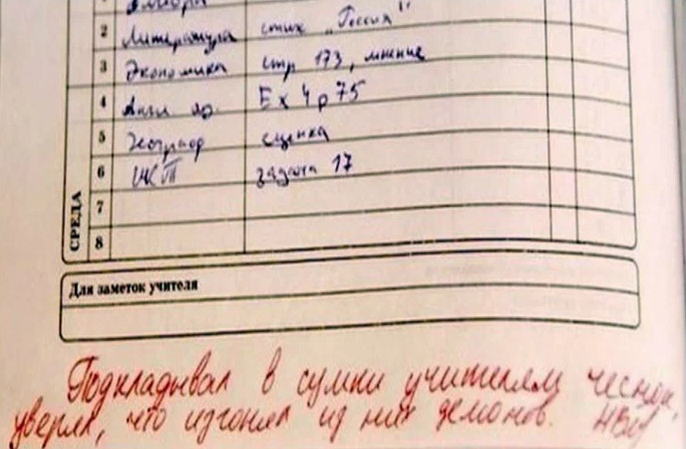 Алгебра
2 Литература стих „Россия"
3 Экономика стр 173, мнение
4 Англ. яз. Ex 4 p 75
5 Театр сценка
6 ИКТ задача 17
7
СРЕДА 8
Для заметок учителя
Подкладывал в сумки учителям чеснок,
уверял, что изгонял из них демонов.